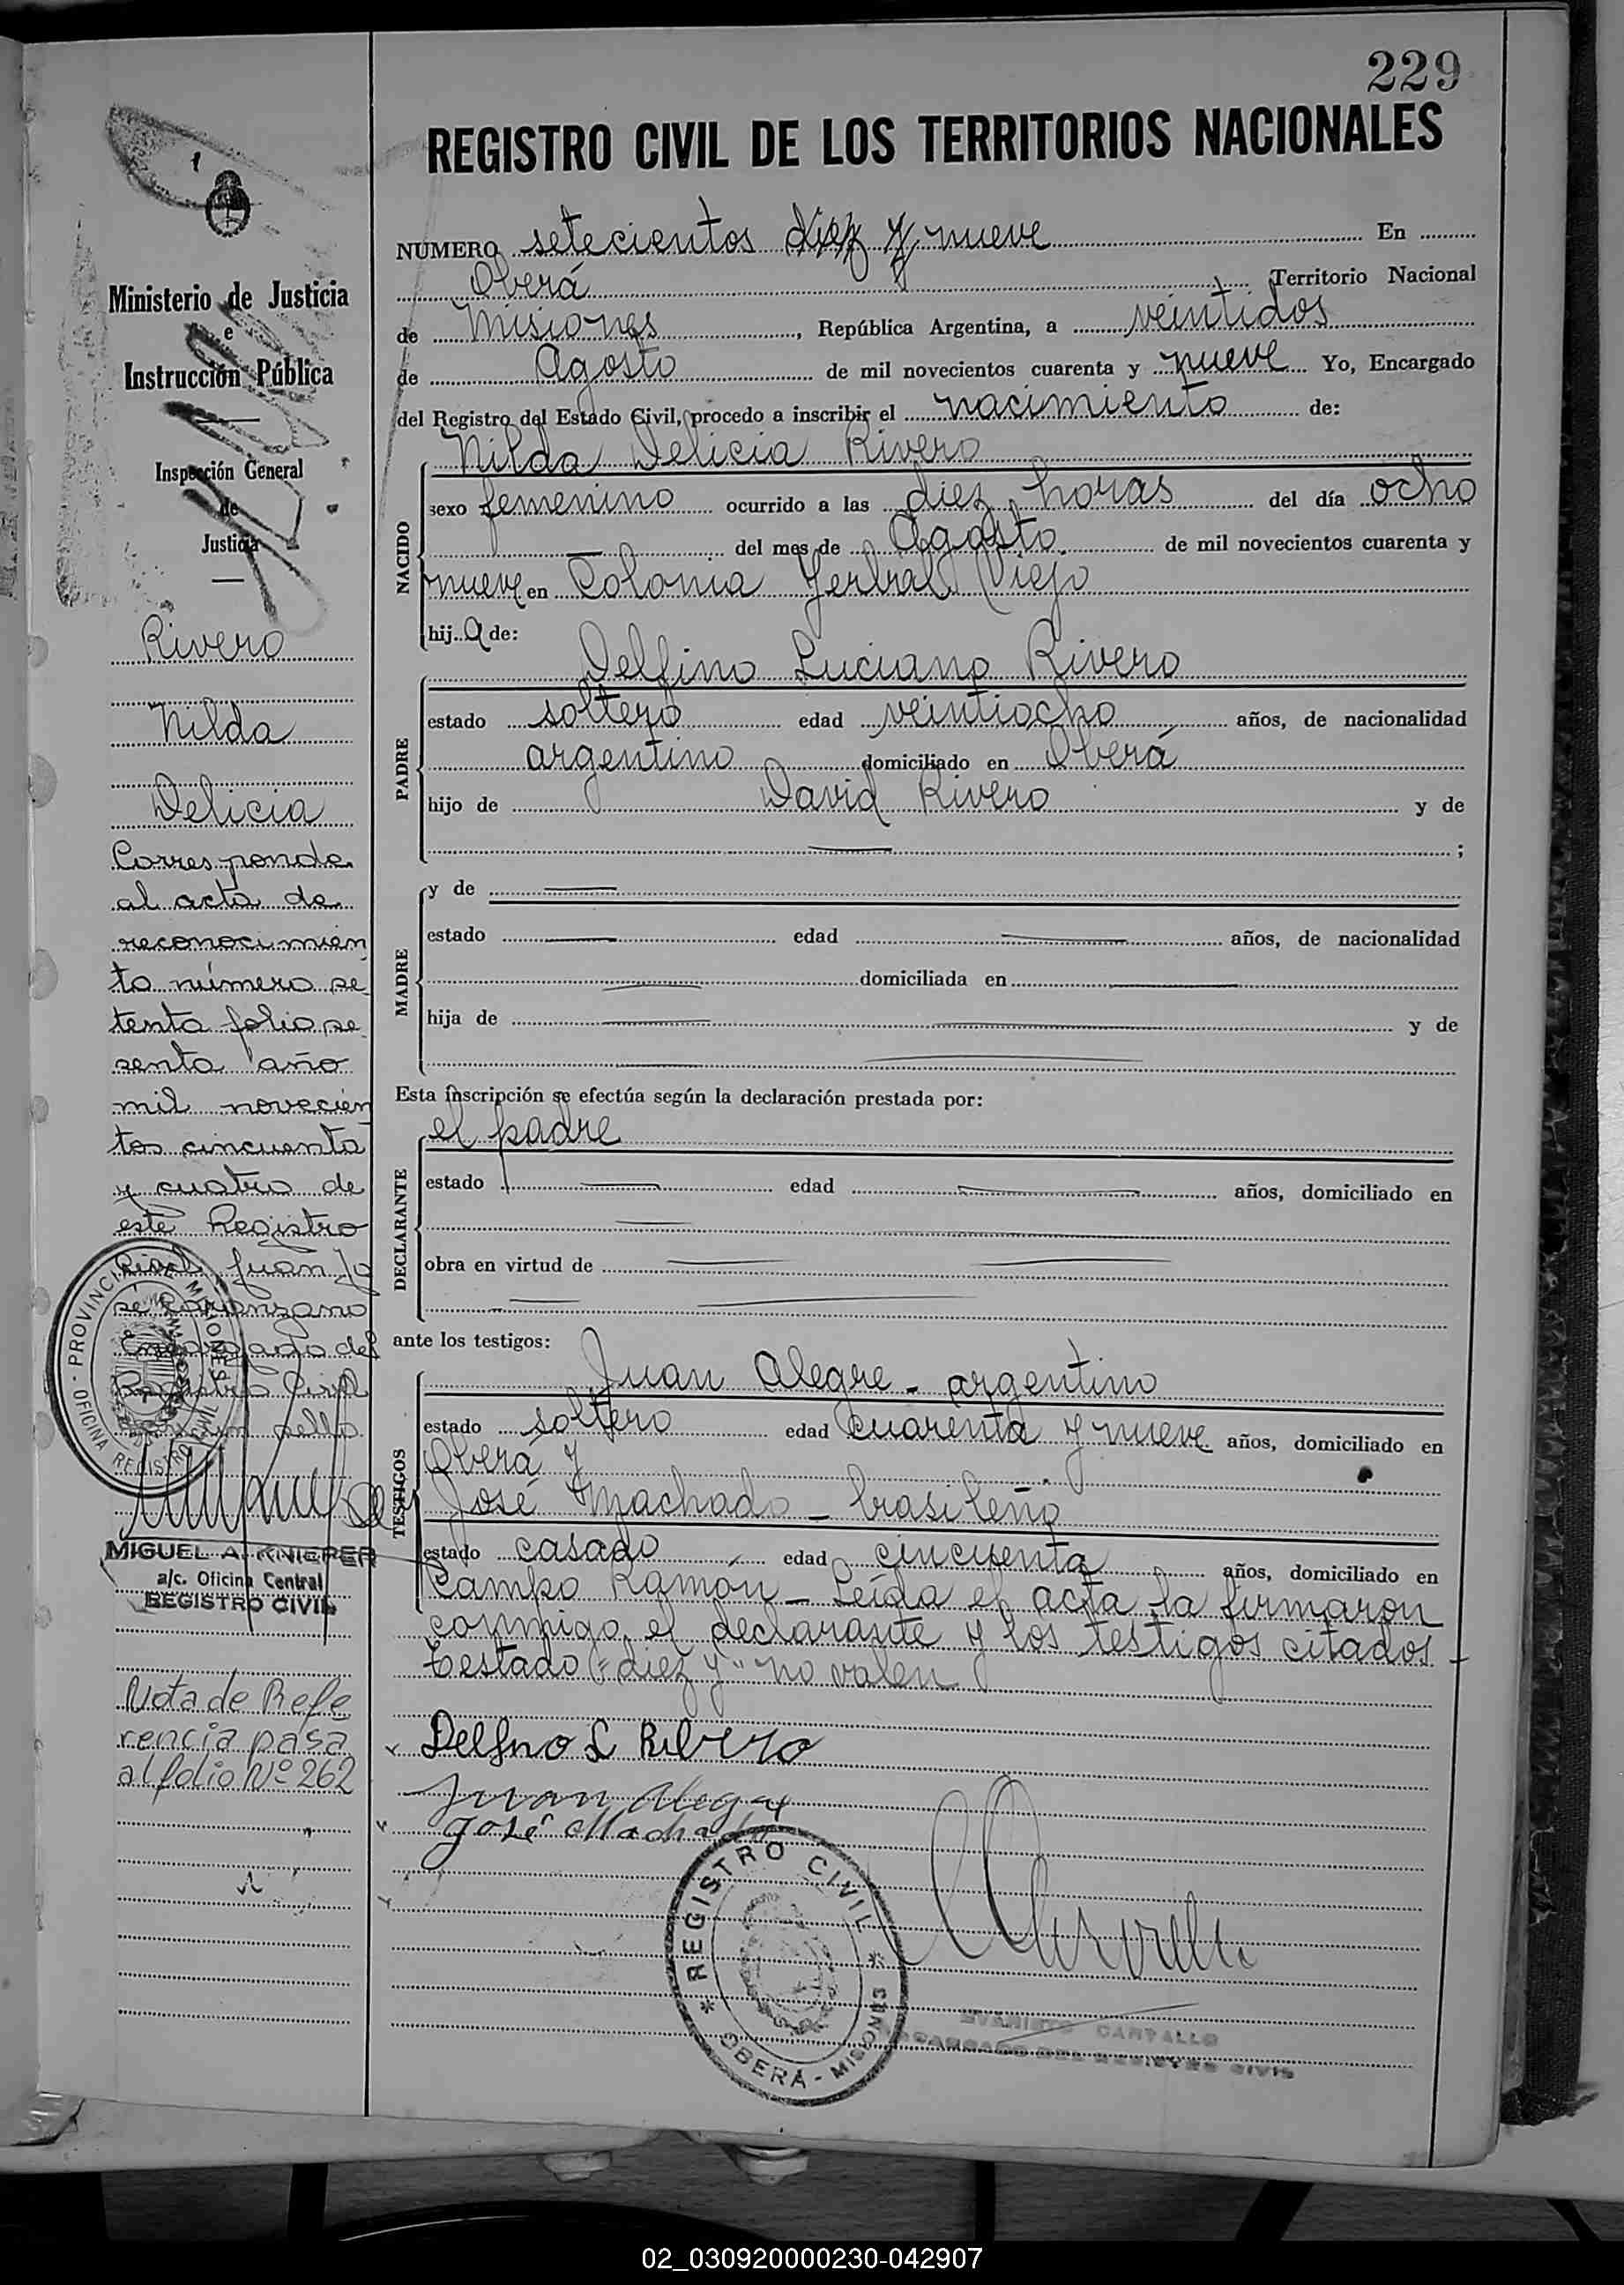 229
REGISTRO CIVIL DE LOS TERRITORIOS NACIONALES
NUMERO setecientos diez y nueve En
Oberá Territorio Nacional
de Misiones, República Argentina, a veintidos
de Agosto de mil novecientos cuarenta y nueve Yo, Encargado
del Registro del Estado Civil, procedo a inscribir el nacimiento de:
NACIDO
Nilda Delicia Rivero
sexo femenino ocurrido a las diez horas del día ocho
del mes de Agosto de mil novecientos cuarenta y
nueve en Colonia Yerbal Viejo
hija de:
PADRE
Delfino Luciano Rivero
estado soltero edad veintiocho años, de nacionalidad
argentino domiciliado en Oberá
hijo de David Rivero y de
;
MADRE
y de
estado edad años, de nacionalidad
domiciliada en
hija de y de
Esta inscripción se efectúa según la declaración prestada por:
DECLARANTE
el padre
estado edad años, domiciliado en
obra en virtud de
ante los testigos:
TESTIGOS
Juan Alegre - argentino
estado soltero edad cuarenta y nueve años, domiciliado en
Oberá y
José Machado - brasileño
estado casado edad cincuenta años, domiciliado en
Campo Ramón - Leída el acta la firmaron
conmigo el declarante y los testigos citados -
Testado "diez y" no valen
Delfino L Ribero
Juan Alegre
José Machado
* REGISTRO CIVIL *
OBERÁ - MISIONES
ENCARGADO DEL REGISTRO CIVIL
Ministerio de Justicia
e
Instrucción Pública
Inspección General
de
Justicia
Rivero
Nilda
Delicia
Corresponde
al acta de
reconocimien
to número se
tenta folio se
senta año
mil novecien
tos cincuenta
y cuatro de
este Registro
Civil Juan Jo
sé
Encargado del
Registro Civil
sello
PROVINCIA DE MISIONES
OFICINA REGISTRO CIVIL
MIGUEL A. KNIEPER
a/c. Oficina Central
REGISTRO CIVIL
Nota de Refe
rencia pasa
al folio Nº 262
02_030920000230-042907